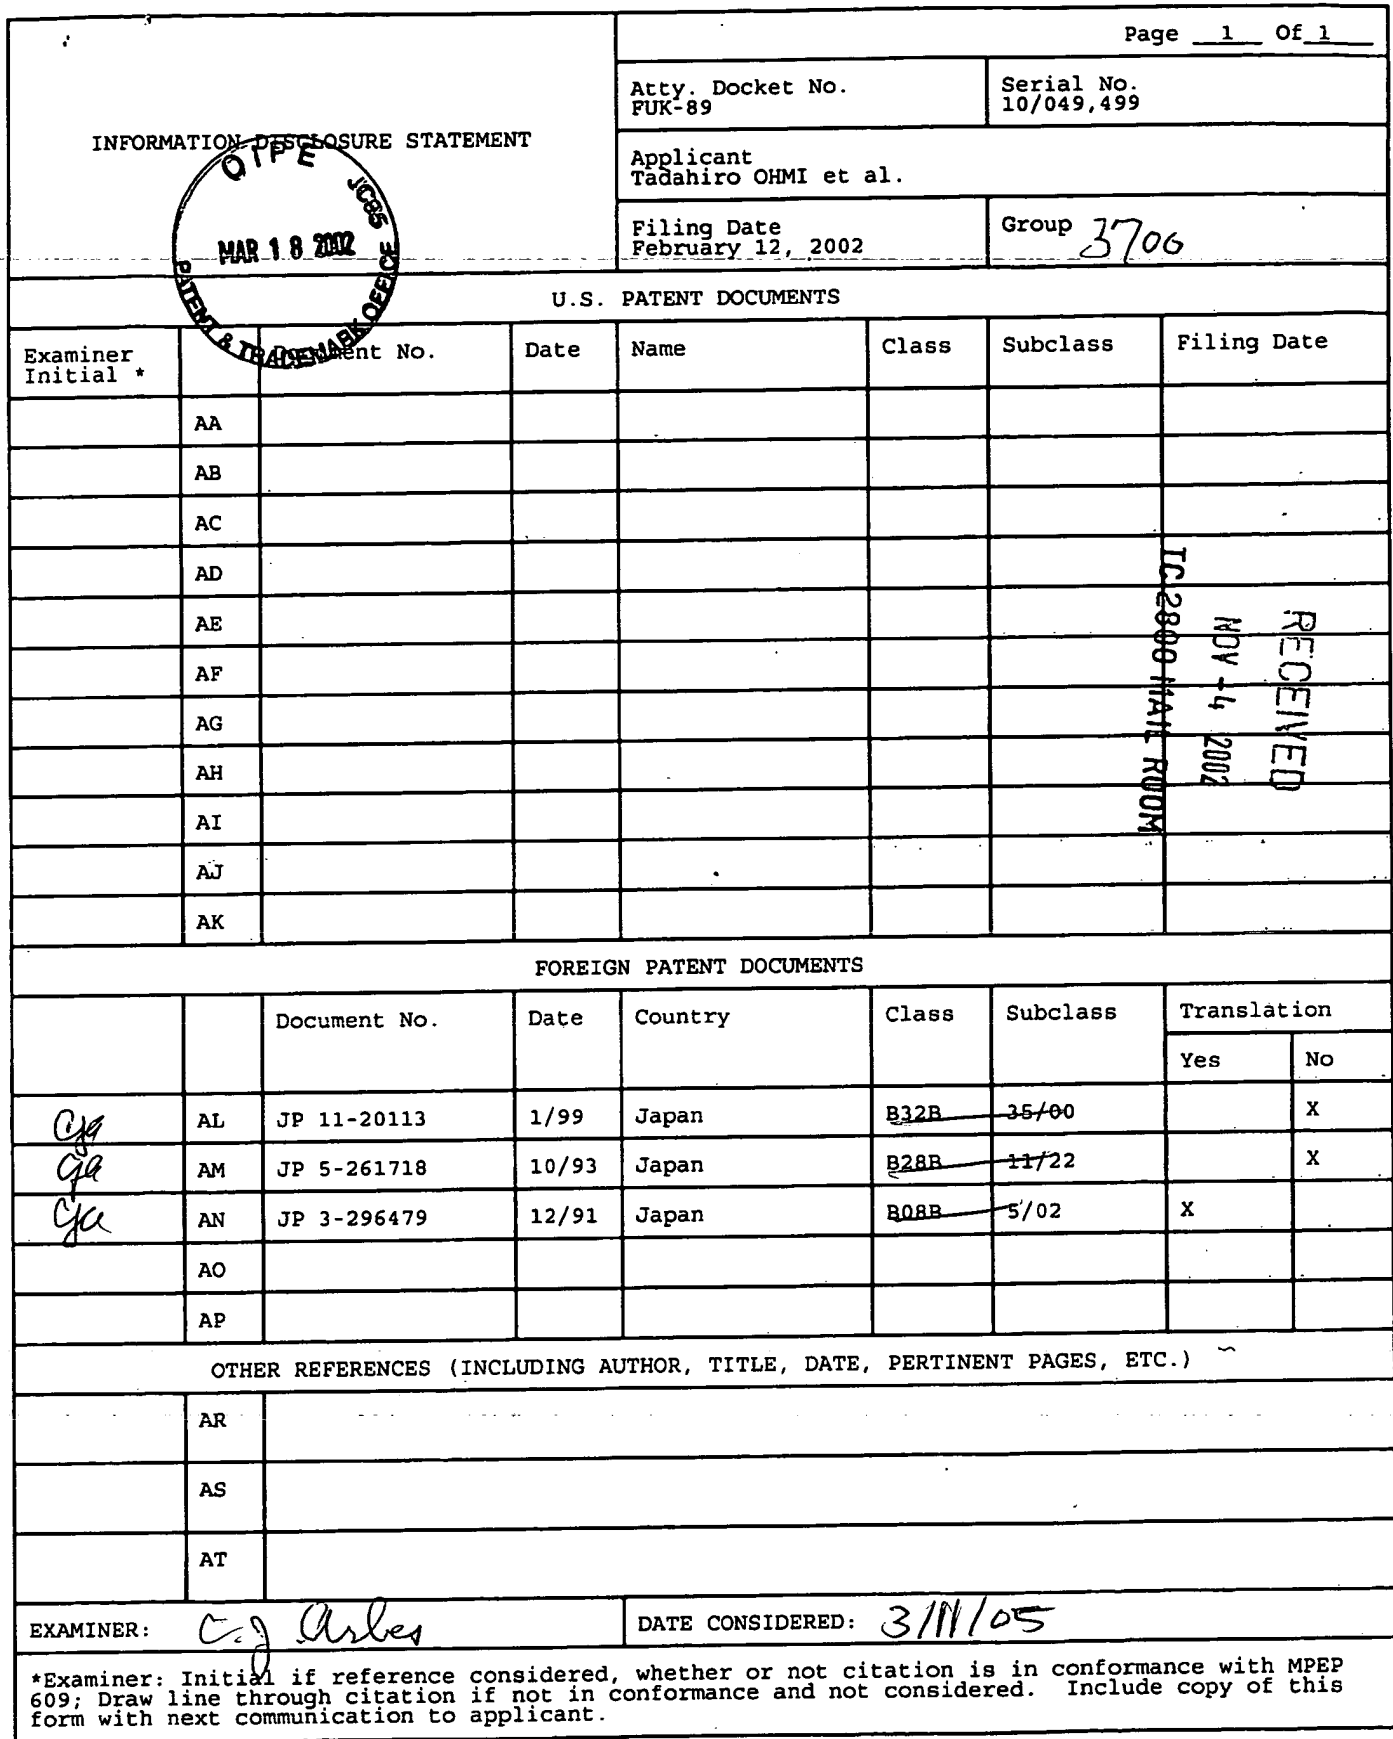 Page 1 Of 1
Atty. Docket No.
FUK-89
Serial No.
10/049,499
INFORMATION DISCLOSURE STATEMENT
Applicant
Tadahiro OHMI et al.
Filing Date
February 12, 2002
Group 3700
OIPE JC85
MAR 18 2002
PATENT & TRADEMARK OFFICE
U.S. PATENT DOCUMENTS
Examiner
Initial *
Document No. Date Name Class Subclass Filing Date
AA
AB
AC
AD
AE
AF
AG
AH
AI
AJ
AK
RECEIVED
NOV -4 2002
TC 2800 MAIL ROOM
FOREIGN PATENT DOCUMENTS
Document No. Date Country Class Subclass Translation
Yes No
cja AL JP 11-20113 1/99 Japan B32B 35/00 X
cja AM JP 5-261718 10/93 Japan B28B 11/22 X
cja AN JP 3-296479 12/91 Japan B08B 5/02 X
AO
AP
OTHER REFERENCES (INCLUDING AUTHOR, TITLE, DATE, PERTINENT PAGES, ETC.)
AR
AS
AT
EXAMINER: C.J Arbes DATE CONSIDERED:
*Examiner: Initial if reference considered, whether or not citation is in conformance with MPEP
609; Draw line through citation if not in conformance and not considered. Include copy of this
form with next communication to applicant.